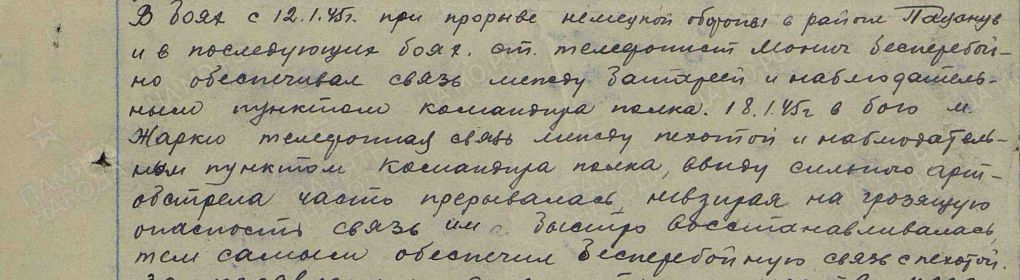 В боях с 12.1.45г. при прорыве немецкой обороны в районе Пацанув
и в последующих боях. ст. телефонист Монич бесперебой-
но обеспечивал связь между батареей и наблюдатель-
ным пунктом командира полка. 18.1.45г в бою м.
Жарки телефонная связь между пехотой и наблюдатель-
ным пунктом командира полка, ввиду сильного арт-
обстрела часто прерывалась, невзирая на грозящую
опасность связь им быстро восстанавливалась,
тем самым обеспечил бесперебойную связь с пехотой.